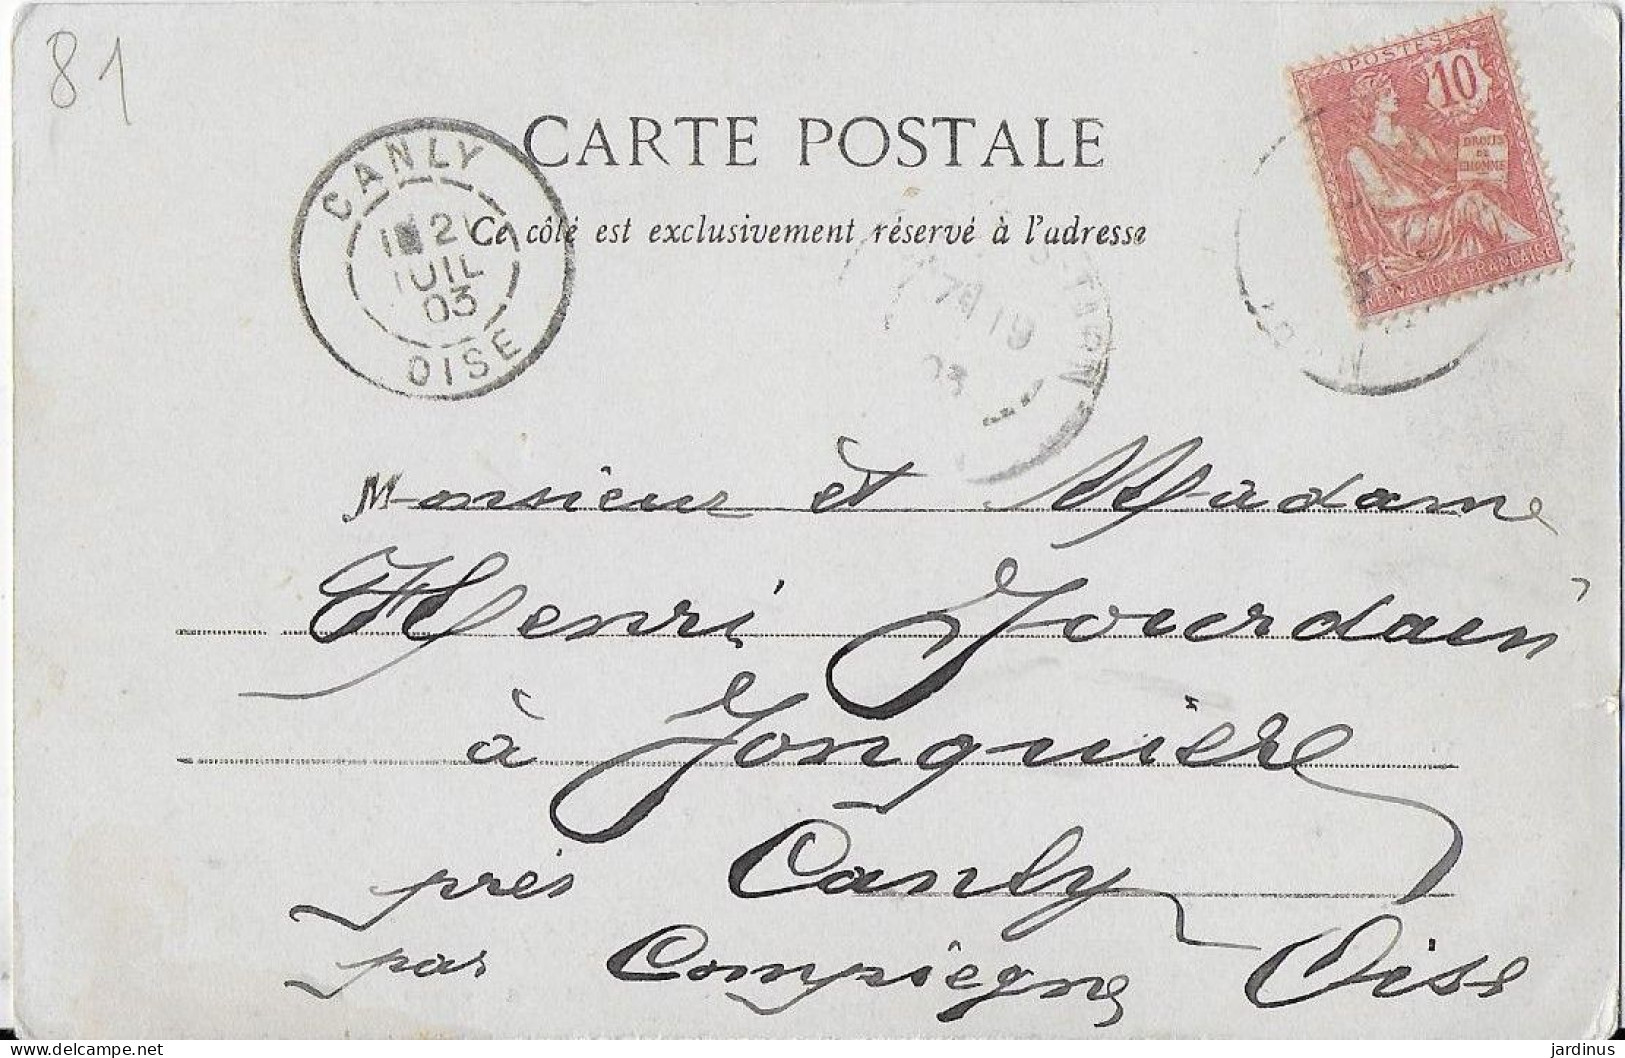 81
CARTE POSTALE
Ce côté est exclusivement réservé à l'adresse
CANLY
21
JUIL
03
OISE
POSTES
10
DROITS
DE
L'HOMME
REPUBLIQUE FRANÇAISE
19
03
Monsieur et Madame
Henri Jourdain
à Jonquière
près Canly
par Compiègne Oise
delcampe.net
jardinus